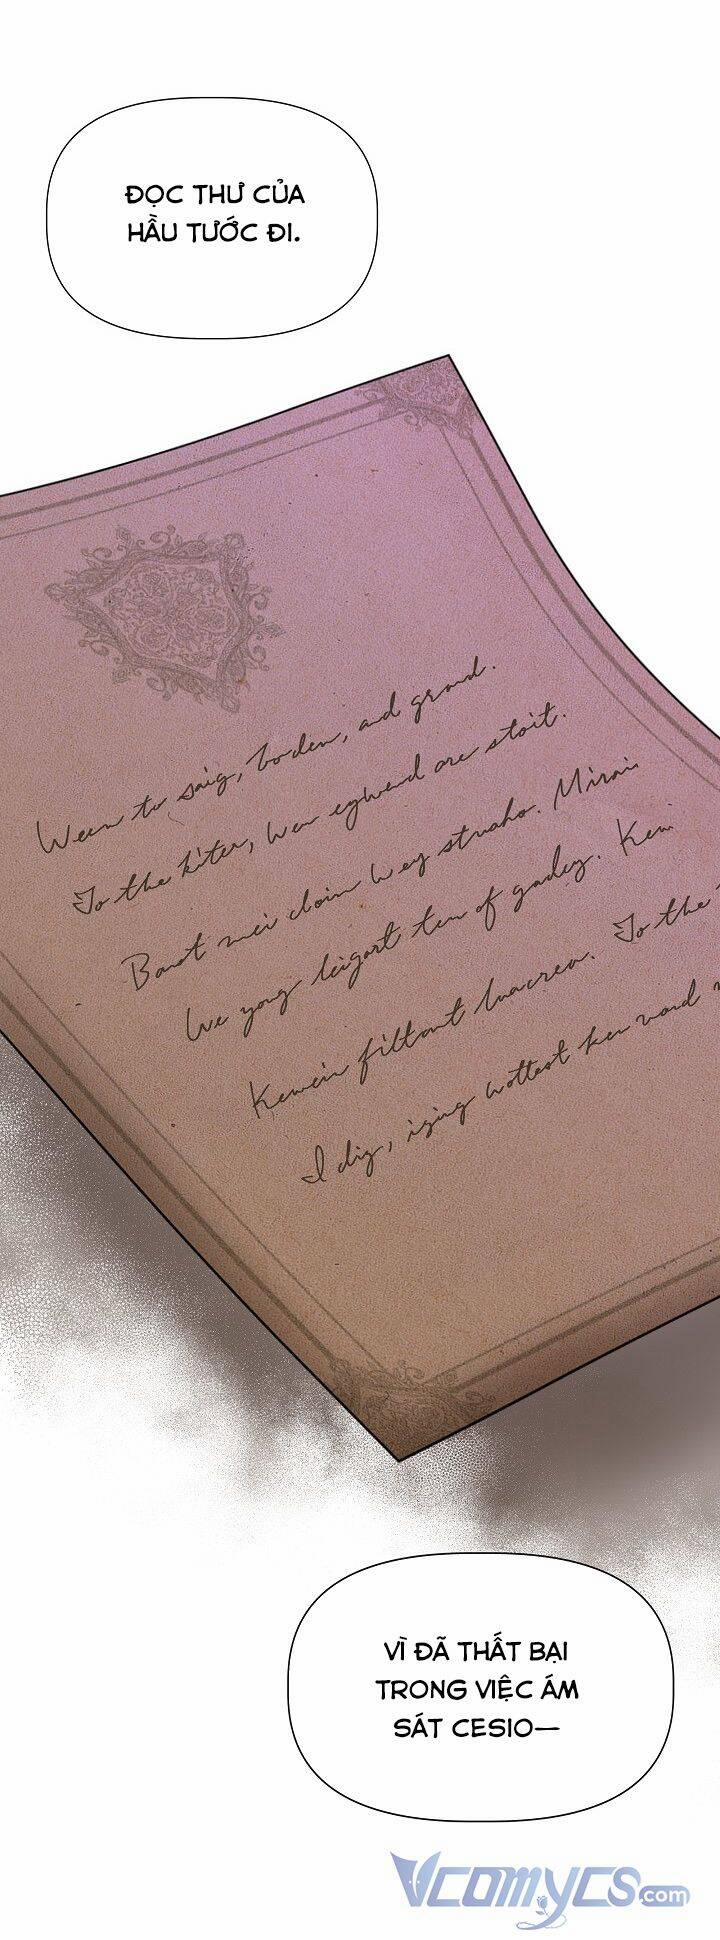 ĐỌC THƯ CỦA
HẦU TƯỚC ĐI.
Ween to saig, boden, and grond.
To the kiter, wer egwend are stoit.
Banot mei cloin wey strusho. Mirai
We yong leigart ten of gadey. Kemi
Kewein filtont luacrea. To the
I dig, izing wottest ken vord
VÌ ĐÃ THẤT BẠI
TRONG VIỆC ÁM
SÁT CESIO—
VCOMYCS.com